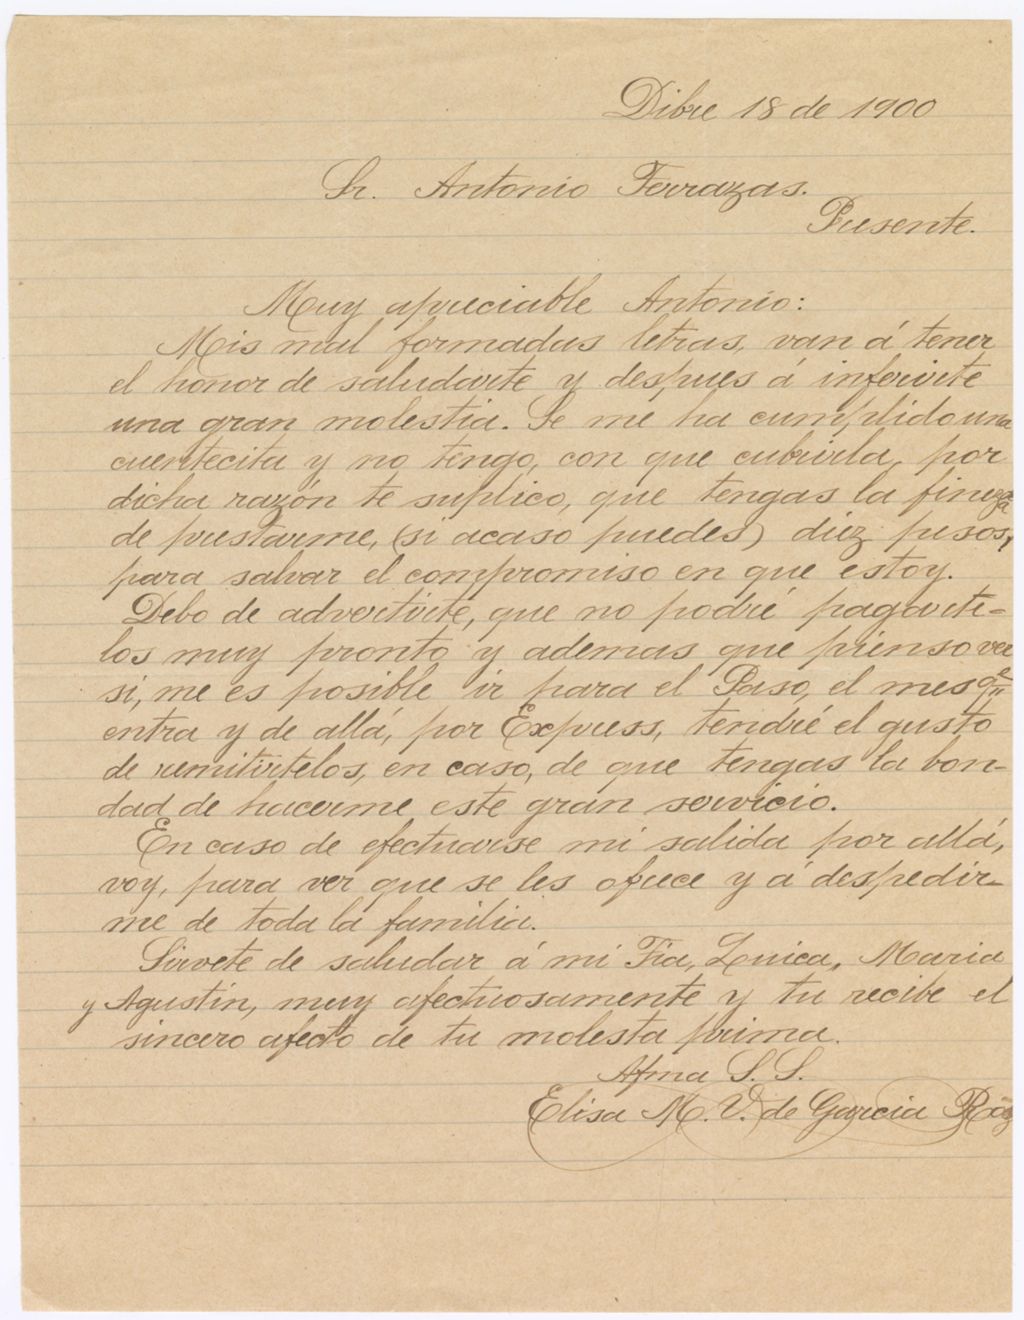 Dibre 18 de 1900
Sr. Antonio Terrazas.
Presente.
Muy apreciable Antonio:
Mis mal formadas letras, van á tener
el honor de saludarte y despues á inferirte
una gran molestia. Se me ha cumplido una
cuentecita y no tengo, con que cubrirla, por
dicha razón te suplico, que tengas la fineza
de prestarme, (si acaso puedes) diez pesos,
para salvar el compromiso en que estoy.
Debo de advertirte, que no podré pagarte-
los muy pronto y ademas que pienso ver
si, me es posible ir para el Paso, el mes qe
entra y de allá, por Express, tendré el gusto
de remitirtelos, en caso, de que tengas la bon-
dad de hacerme este gran servicio.
En caso de efectuarse mi salida por allá,
voy, para ver que se les ofrece y á despedir-
me de toda la familia.
Sirvete de saludar á mi Tia, Luica, Maria
y Agustin, muy afectuosamente y tu recibe el
sincero afecto de tu molesta prima.
Afma S. S.
Elisa M. V. de Garcia